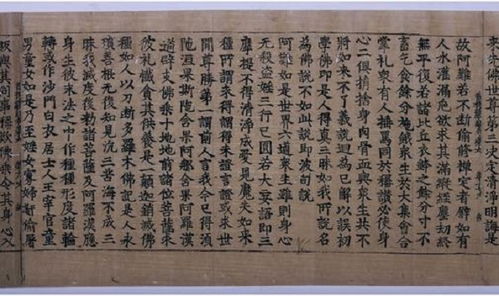 來先佛世尊第三決定清淨明誨是
故阿難若不斷偷修禪定者譬如有
人水灌漏卮欲求其滿縱經塵劫終
無平復若諸比丘衣鉢之餘分寸不
畜乞食餘分施餓眾生於大集會合
掌礼眾有人捶詈同於稱讚必使身
心二俱捐捨身肉骨血與眾生共不
將如來不了義說迴為已解以誤初
學佛印是人得真三昧如我所說名
為佛說不如此說即波旬說
阿難如是世界六道眾生雖則身心
无殺盜婬三行已圓若大妄語即三
摩提不得清淨成愛見魔失如來
種所謂未得謂得未證言證或求世
間尊勝第一謂前人言我今已得須
陀洹果斯陀含果阿那含果阿羅漢
道辟支佛乘十地地前諸位菩薩求
彼礼懺貪其供養是一顛迦銷滅佛
種如人以刀斷多羅木佛記是人永
殞善根無復知見沉三苦海不成三
昧我滅度後勅諸菩薩及阿羅漢應
身生彼末法之中作種種形度諸輪
轉或作沙門白衣居士人王宰官童
男童女如是乃至婬女寡婦姦偷屠
販與其同事稱歎佛乘令其身心入